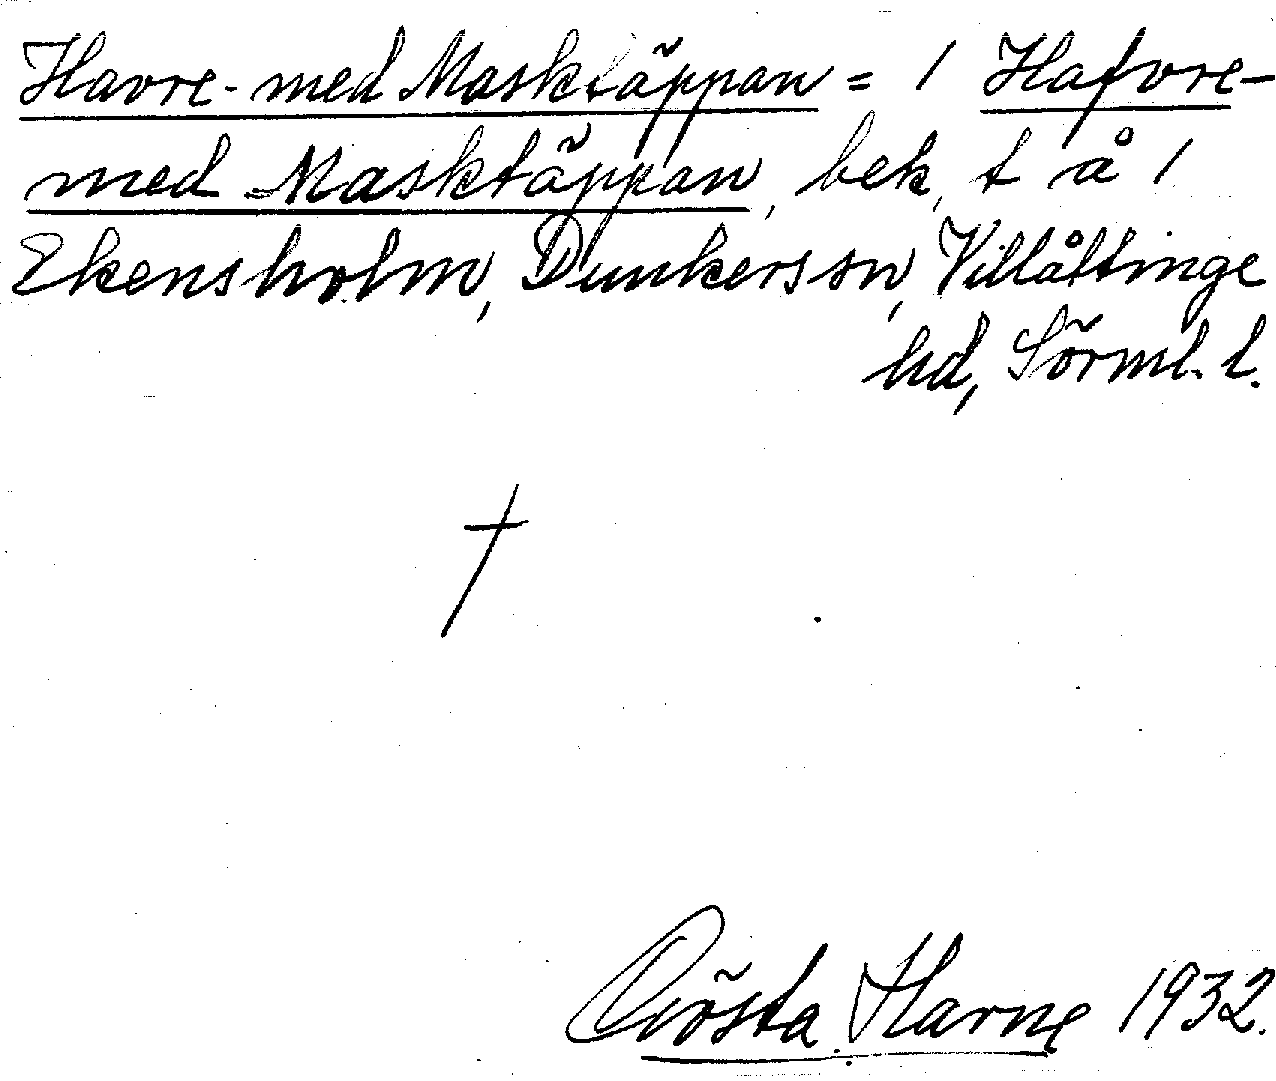 Havre- med Masktäppan = 1 Hafvre-
med Masktäppan, bek, t å 1
Ekensholm, Dunkers sn, Villåttinge
hd, Sörml. l.
†
Gösta Harne 1932.